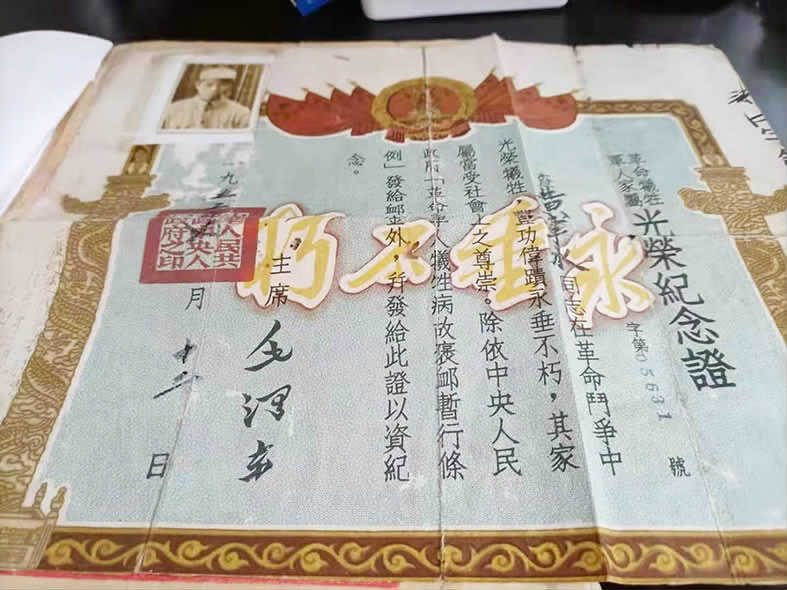 革命犧牲
軍人家屬
光榮紀念證
字第05631號
同志在革命鬥爭中
光榮犧牲，豐功偉蹟永垂不朽，其家
屬當受社會上之尊崇。除依中央人民
政府「革命軍人犧牲病故褒卹暫行條
例」發給卹金外，幷發給此證以資紀
念。
永垂不朽
主席 毛澤東
一九五 月十二日
中華人民共
和國中央人
民政府之印